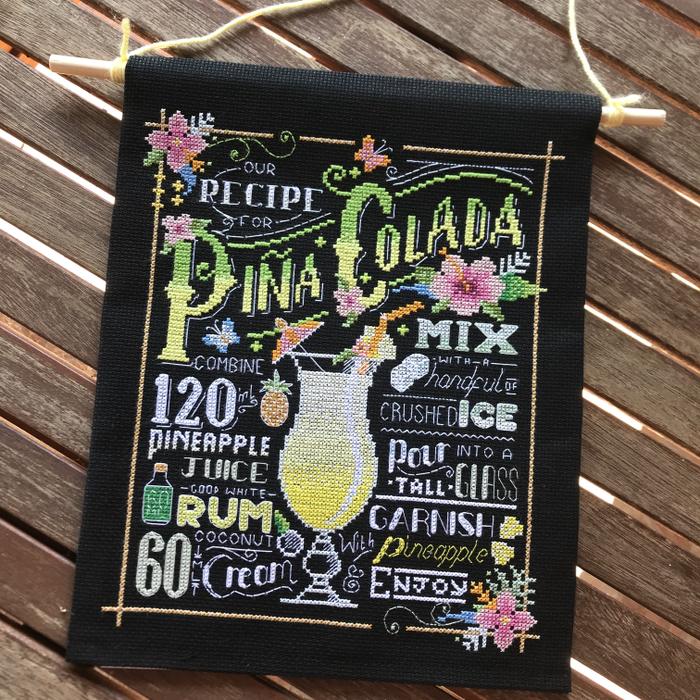 OUR
RECIPE
FOR
PIÑA COLADA
COMBINE
120 ml
PINEAPPLE
JUICE
GOOD WHITE
RUM
60 COCONUT
Cream
MIX
WITH-A
handful OF
CRUSHED ICE
POUR INTO A
TALL GLASS
GARNISH
With pineapple
& ENJOY